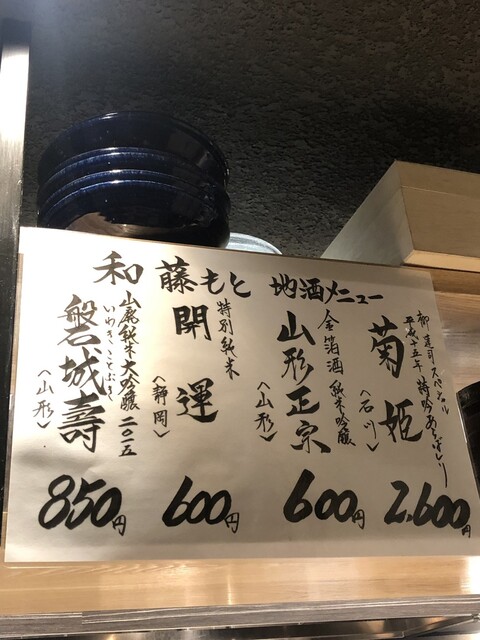 和 藤もと 地酒メニュー
平成十五年 特吟あらばしり
菊姫
〈石川〉
2,600円
金箔酒 純米吟醸
山形正宗
〈山形〉
600円
特別純米
開運
〈静岡〉
600円
山廃純米大吟醸 二〇一五
いわきことぶき
磐城壽
〈山形〉
850円